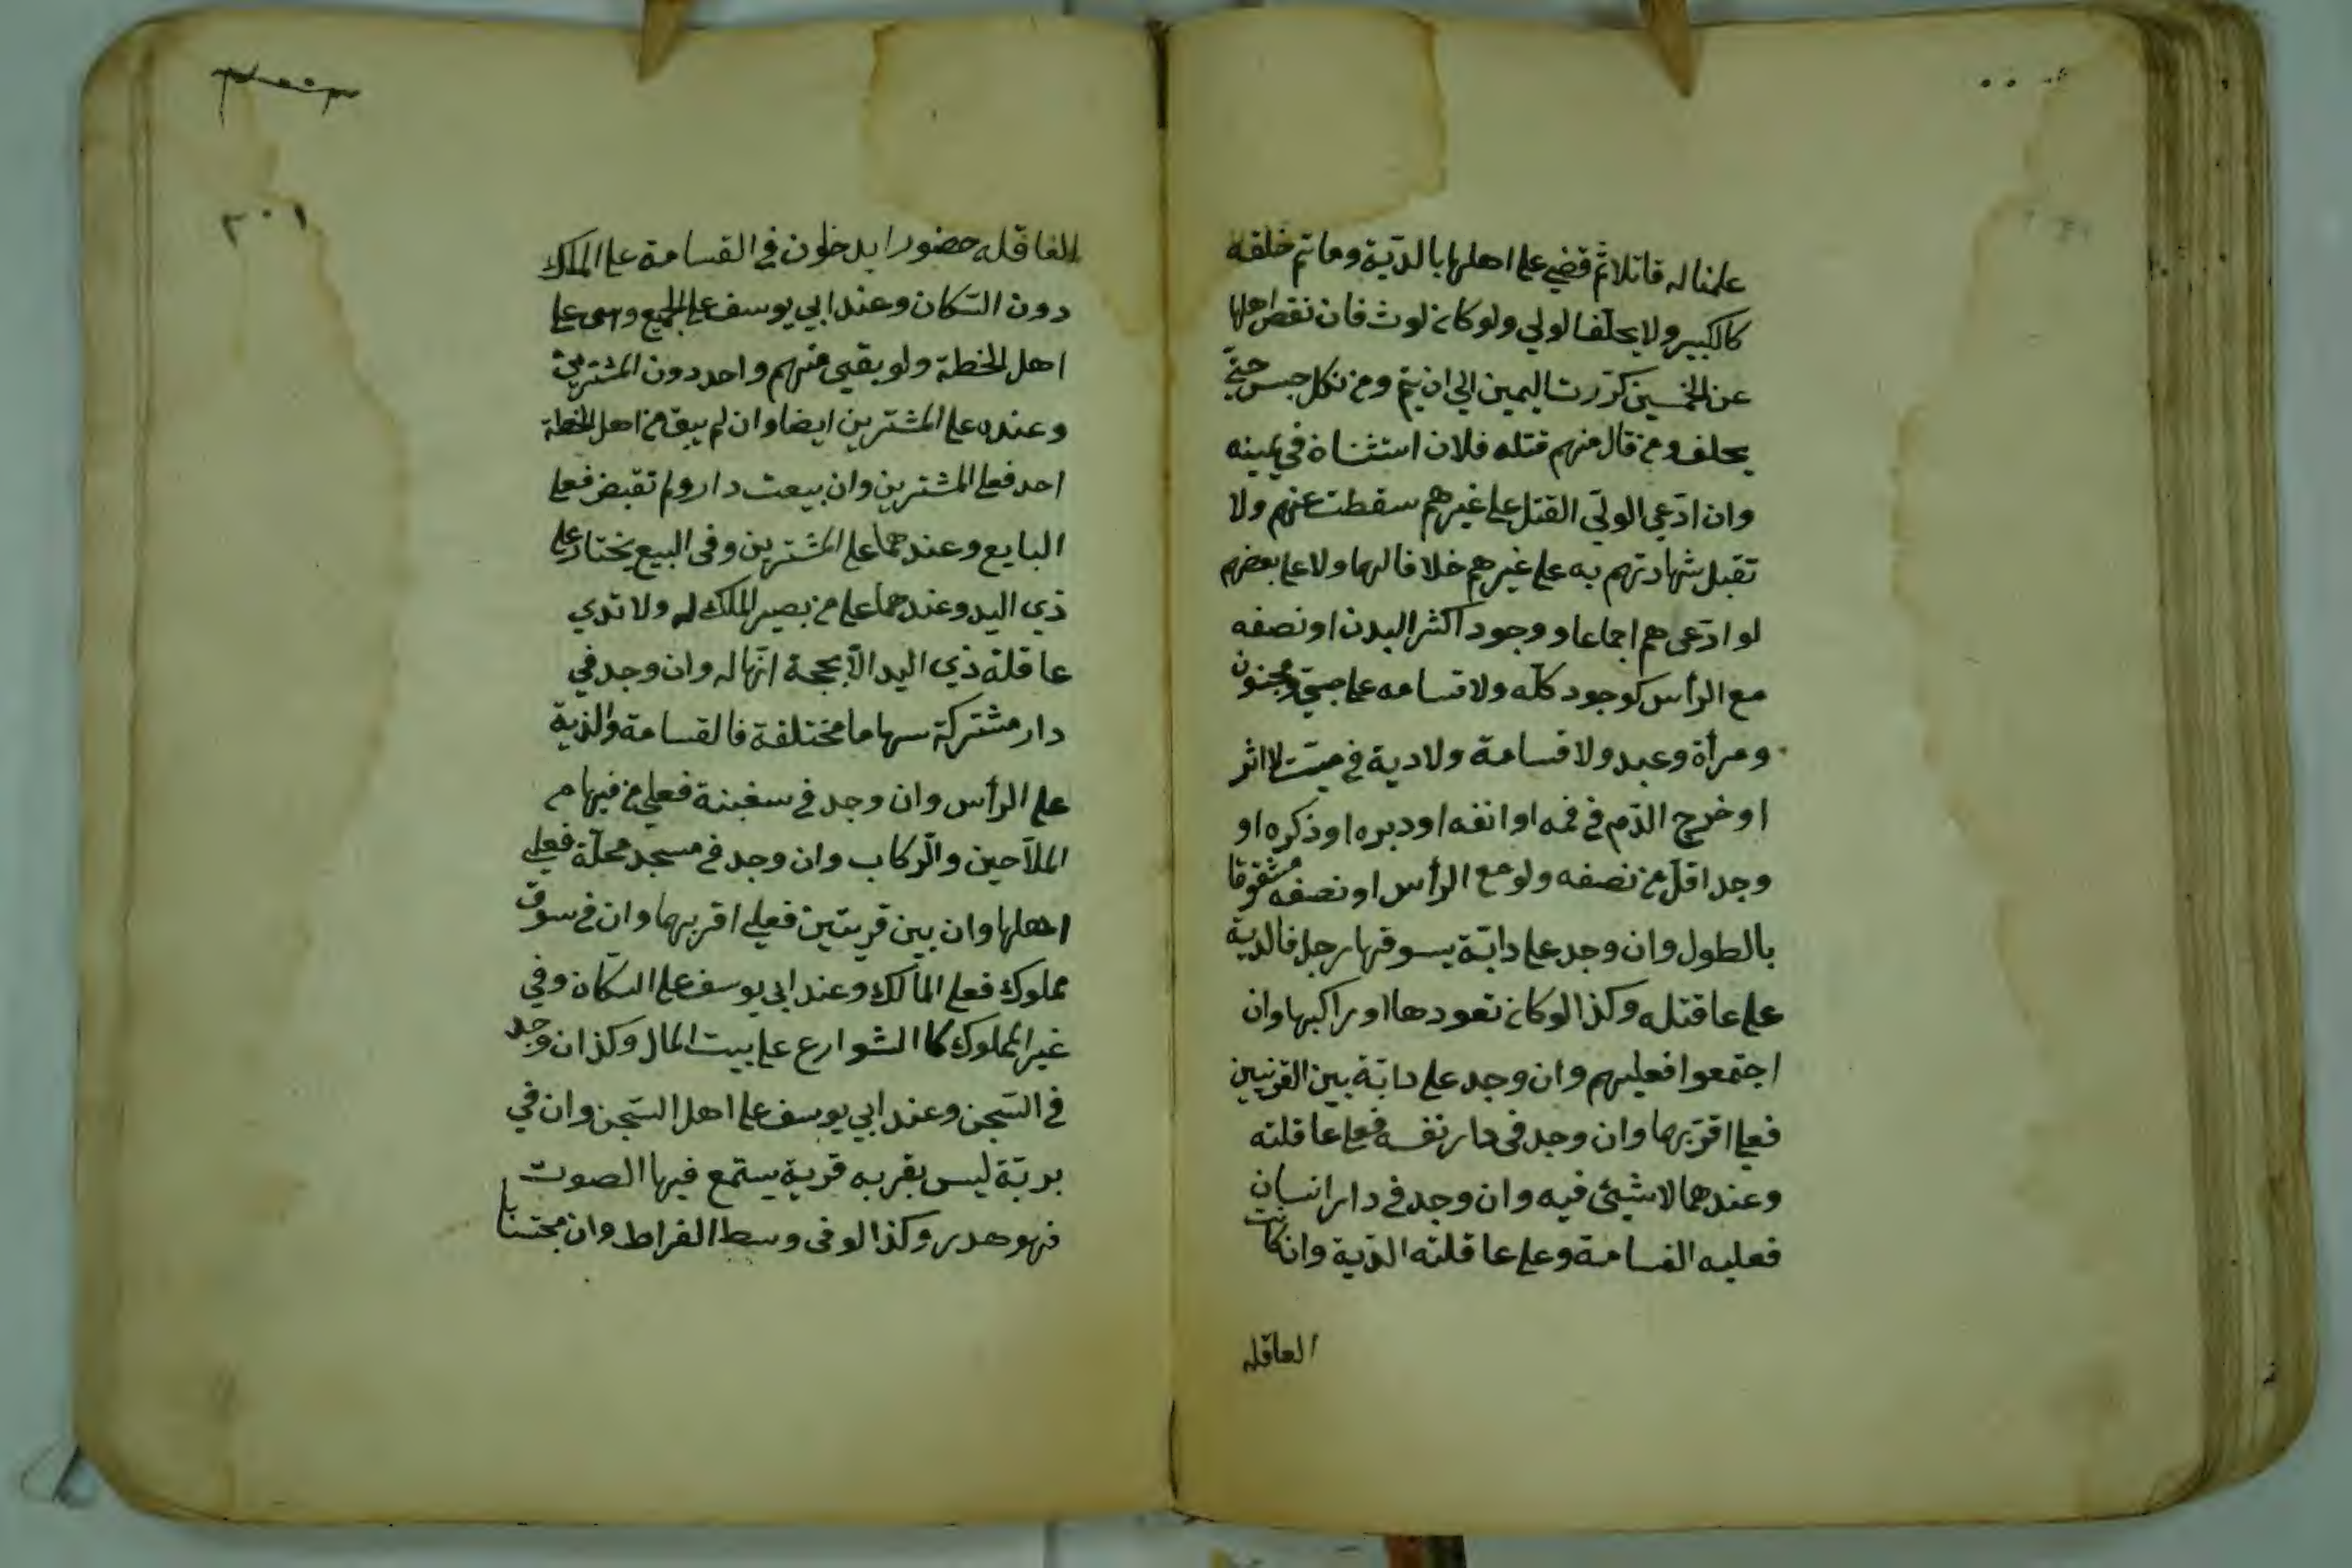 علمنا له قاتلا ثم قضي على اهلها بالدية وما تم خلقه
كالكبير ولا يحلف الولي ولو كان لوث فان نقص اهلها
عن الخمسين كررت اليمين الي ان يتم ومن نكل حبس حتي
يحلف ومن قال منهم قتله فلان استثناه في يمينه
وان ادعي الولي القتل على غيرهم سقطت عنهم ولا
تقبل شهادتهم به على غيرهم خلافا لهما ولا على بعضهم
لو ادعى هم اجماعا و وجود اكثر البدن او نصفه
مع الرأس كوجود كله ولا قسامه على صبي ومجنون
ومرأة وعبد ولا قسامة ولا دية في ميت لا اثر
او خرج الدم في فمه او انفه او دبره او ذكره او
وجد اقل من نصفه ولو مع الرأس او نصفه مشقوقا
بالطول وان وجد على دابة يسوقها رجل فالدية
على عاقتله وكذا لو كان تعودها او راكبها وان
اجتمعوا فعليهم وان وجد على دابة بين القرنيين
فعلى اقربهما وان وجد في دار نفسه فعلى عاقلته
وعندهما لا شيئ فيه وان وجد في دار انسان
فعليه القسامة وعلى عاقلته الدية وان كانت
العاقله
٢٠١
العاقله حضورا يدخلون في القسامة على الملاك
دون السكان وعند ابي يوسف على الجميع وهى على
اهل الخطة ولو بقيى منهم واحد دون المشتريين
وعنده على المشترين ايضا وان لم يبق من اهل الخطة
احد فعلى المشترين وان بيعت دار ولم تقبض فعلى
البايع وعندهما على المشترين وفى البيع بختار على
ذي اليد وعندهما على من يصير الملك له ولا تدي
عاقلة ذي اليد الا بحجة انها له وان وجد في
دار مشتركة سهاما مختلفة فالقسامة والدية
على الرأس وان وجد في سفينة فعلى من فيها من
الملاحين والركاب وان وجد في مسجد محلة فعلي
اهلها وان بين قريتين فعلي اقربهما وان في سوق
مملوك فعلى المالك وعند ابي يوسف على السكان وفي
غير المملوك كا الشوارع على بيت المال وكذا ان وجد
في السجن وعند ابي يوسف على اهل السجن وان في
برية ليس بقربه قرية يستمع فيها الصوت
فهو هدر وكذا لو فى وسط الفراط وان محتبسا